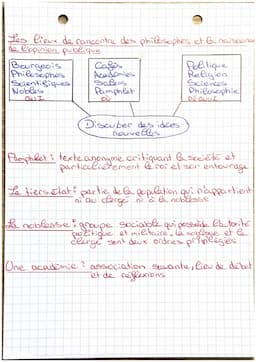 Les lieux de rencontre des philosophes et la naissance
de l'opinion publique
Bourgeois
Philosophes
Scientifiques
Nobles
QUI
Cafés
Académies
Salons
Pamphlet
OÙ
Politique
Religion
Sciences
Philosophie
DE QUOI
Discuter des idées
nouvelles
Pamphlet : texte anonyme critiquant la société et
particulièrement le roi et son entourage
Le tiers état : partie de la population qui n'appartient
ni au clergé ni à la noblesse
La noblesse : groupe sociable qui possède
politique et militaire, la noblesse et le
clergé sont deux ordres privilégiés
Une académie : association savante, lieu de débat
et de réflexions